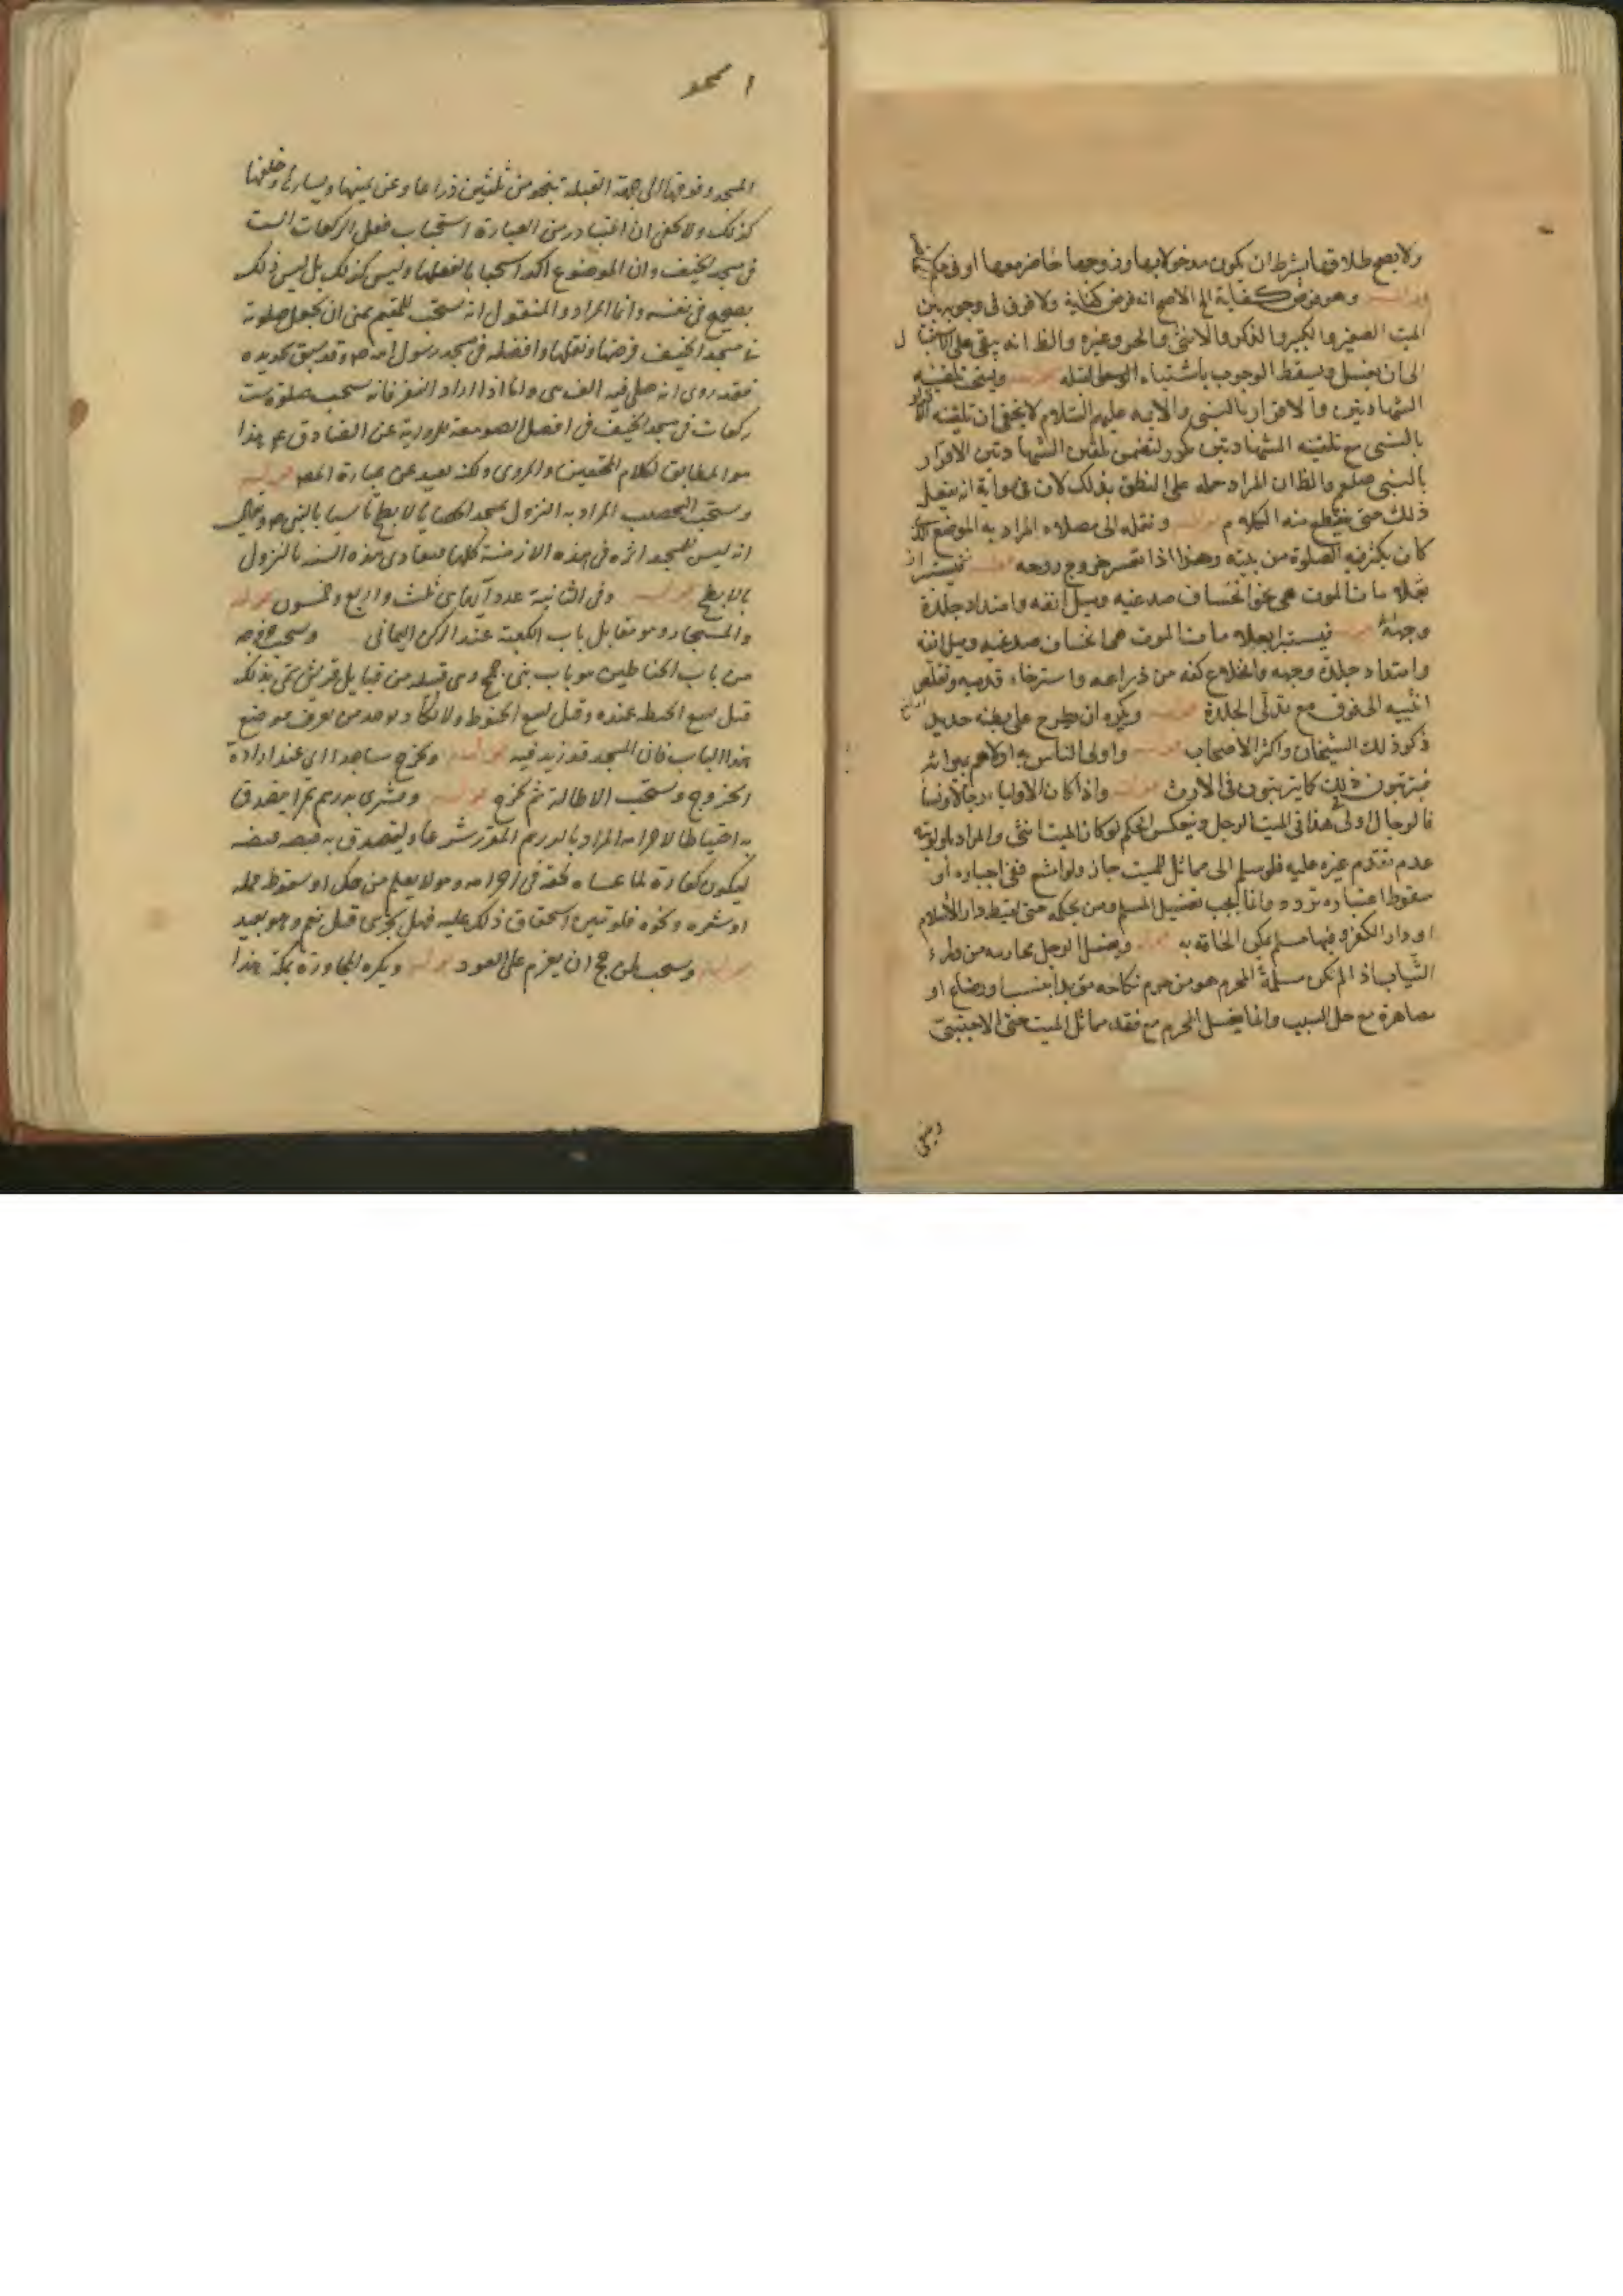 ولا يصح طلاقها بشرط ان يكون مدخولا بها وزوجها حاضر معها او في حكمه
قوله وهو فرض كفاية الخ الاصح انه فرض كفاية ولا فرق في وجوبه بين
الميت الصغير والكبير والذكر والانثى والحر وغيره والظ انه يبقى على
الى ان يغسل ويسقط الوجوب باشتباه قوله ويستحب تلقينه
الشهادتين والاقرار بالنبي والائمة عليهم السلام لا يخفى ان تلقينه الاقرار
بالنبي مع تلقينه الشهادتين مكرر لتضمن تلقين الشهادتين الاقرار
بالنبي صلعم والظ ان المراد حمله على النطق بذلك لان في رواية انه يفعل
ذلك حتى ينقطع منه الكلام م قوله ونقله الى مصلاه المراد به الموضع الذي
كان يكثر فيه الصلوة من بيته وهذا اذا تعسر خروج روحه قوله فيستبرا
بعلامات الموت هي نحو انخساف صدغيه وميل انفه وامتداد جلدة
وجهه قوله فيستبرا بعلامات الموت هي انخساف صدغيه وميل انفه
وامتداد جلدة وجهه وانخلاع كفه من ذراعه واسترخاء قدميه وتقلص
انثييه الى فوق مع تدلى الجلدة قوله ويكره ان يطرح على بطنه حديد
ذكر ذلك الشيخان واكثر الاصحاب قوله واولى الناس به اولاهم بميراثه
فيترتبون في ذلك كما يترتبون في الارث قوله واذا كان الاولياء رجالا ونساء
فالرجال اولى هذا في الميت الرجل وينعكس الحكم لو كان الميت انثى والمراد باولويته
عدم تقدم غيره عليه فلو سلم الى مماثل للميت جاز ولو امتنع ففي اجباره او
سقوط اعتباره تردد وانما يجب تغسيل المسلم ومن بحكمه حتى لقيط دار الاسلام
او دار الكفر وفيها مسلم يمكن الحاقه به قوله ويغسل الرجل محارمه من وراء
الثياب اذا لم تكن مسلمة المحرم هو من حرم نكاحه مؤبدا بنسب او رضاع او
مصاهرة مع حل السبب وانما يغسل المحرم مع فقد مماثل الميت حتى الاجنبي
المسجد وفوقها الى جهة القبلة بنحو من ثلثين ذراعا وعن يمينها ويسارها وخلفها
كذلك ولا يخفى ان المتبادر من العبارة استحباب فعل الركعات الست
في مسجد الخيف وان الموضوع اكد استحبابا لفعلها وليس كذلك بل ليس ذلك
بصحيح في نفسه وانما المراد والمنقول انه يستحب للمقيم بمنى ان يجعل صلوته
في مسجد الخيف فرضها ونفلها وافضله في مسجد رسول الله ص وقد سبق تحديده
فقد روى انه صلى فيه الف نبي واما اذا اراد النفر فانه يستحب صلوة ست
ركعات في مسجد الخيف في اصل الصومعة للرواية عن الصادق ع هذا
هو المطابق لكلام المحققين والمروى ولكنه بعيد عن عبارة المص قوله
ويستحب التحصيب المراد به النزول بمسجد الحصباء بالابطح تاسيا بالنبي ص
انه ليس للمسجد اثر في هذه الازمنة كلها فتتادى هذه السنة بالنزول
بالابطح قوله وفي الثانية عدد آيها ثلث واربع وخمسون قوله
والمستجار وهو مقابل باب الكعبة عند الركن اليماني ويستحب خروجه
من باب الحناطين هو باب بني جمح وهي قبيلة من قبايل قريش سمى بذلك
قيل لبيع الحنطة عنده وقيل لبيع الحنوط ولا يكاد يوجد من يعرف موضع
هذا الباب فان المسجد قد زيد فيه قوله ويخرج ساجدا اى عند ارادة
الخروج ويستحب الاطالة ثم يخرج قوله ويشترى بدرهم تمرا يتصدق
به احتياطا لاحرامه المراد بالدرهم المقرر شرعا وليتصدق به قبضة قبضة
ليكون كفارة لما عساه لحقه في احرامه وهو لا يعلم من حك او سقوط قملة
او شعرة ونحوه فلو تبين استحقاق ذلك عليه فهل يجزى قيل نعم وهو بعيد
قوله ويستحب لمن حج ان يعزم على العود قوله ويكره المجاورة بمكة هذا